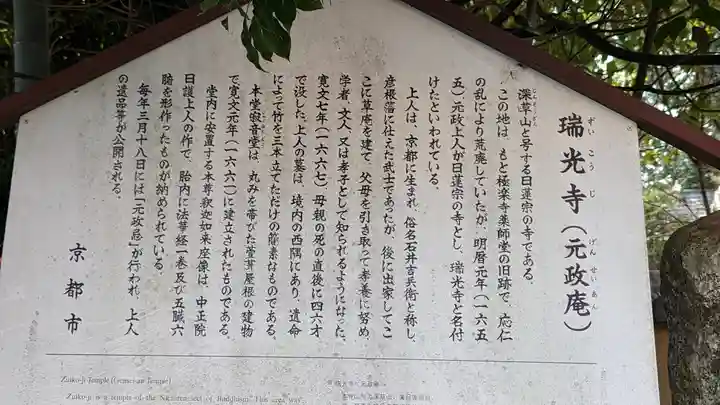 瑞光寺(元政庵)
ずいこうじ
げんせいあん
深草山と号する日蓮宗の寺である。
じんそうざん
この地は、もと極楽寺薬師堂の旧跡で、応仁
の乱により荒廃していたが、明暦元年(一六五
五)元政上人が日蓮宗の寺とし、瑞光寺と名付
けたといわれている。
上人は、京都に生まれ、俗名石井吉兵衛と称し、
彦根藩に仕えた武士であったが、後に出家してこ
こに草庵を建て、父母を引き取って孝養に努め、
学者、文人、又は孝子として知られるようになった。
寛文七年(一六六七)、母親の死の直後に四六才
で没した。上人の墓は、境内の西隅にあり、遺命
によって竹を三本立てただけの簡素なものである。
本堂寂音堂は、丸みを帯びた萱葺屋根の建物
で寛文元年(一六六一)に建立されたものである。
堂内に安置する本尊釈迦如来座像は、中正院
日護上人の作で、胎内に法華経一巻及び五臓六
腑を形作ったものが納められている。
毎年三月十八日には「元政忌」が行われ、上人
の遺品等が公開される。
京都市
Zuiko-ji Temple
Zuiko-ji is a temple of the Nichiren sect of Buddhism. This area was